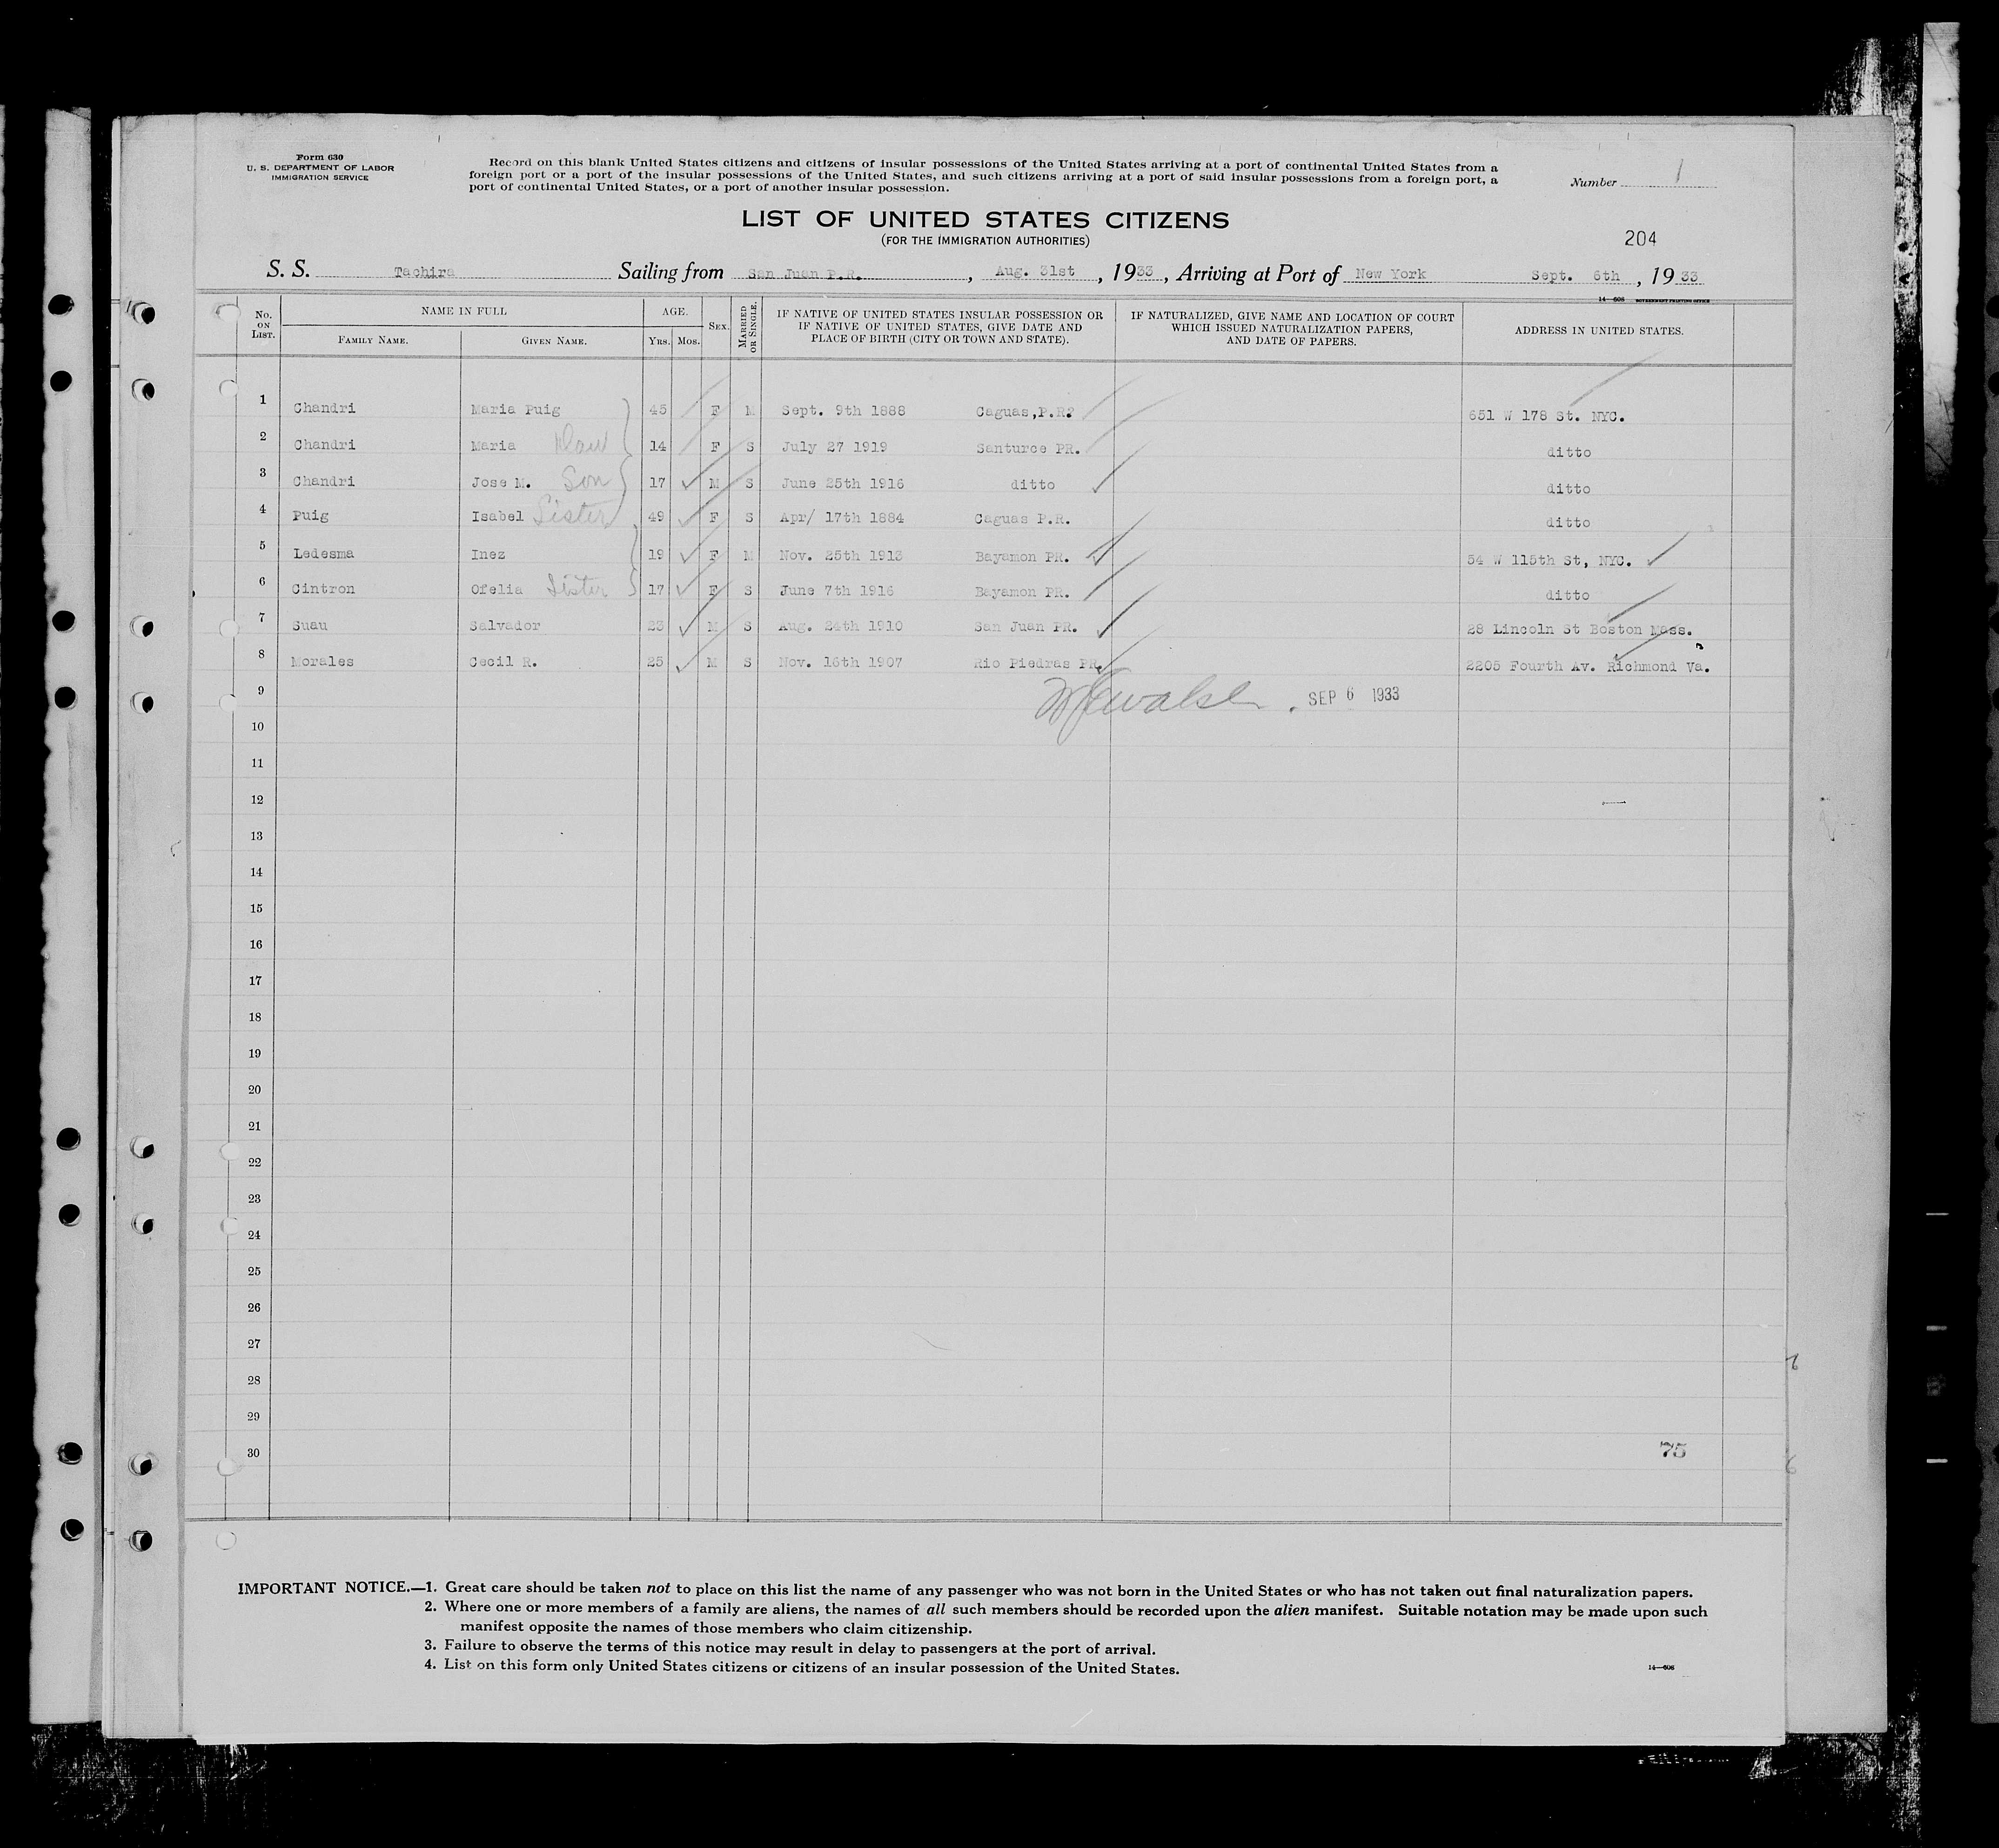 Form 630
U. S. DEPARTMENT OF LABOR
IMMIGRATION SERVICE
Record on this blank United States citizens and citizens of insular possessions of the United States arriving at a port of continental United States from a
foreign port or a port of the insular possessions of the United States, and such citizens arriving at a port of said insular possessions from a foreign port, a
port of continental United States, or a port of another insular possession.
Number 1
LIST OF UNITED STATES CITIZENS
(FOR THE IMMIGRATION AUTHORITIES)
204
S. S. Tachira Sailing from San Juan P.R. , Aug. 31st , 1933 , Arriving at Port of New York Sept. 6th , 1933
14—606 GOVERNMENT PRINTING OFFICE
No. ON LIST. NAME IN FULL FAMILY NAME. GIVEN NAME. AGE. YRS. MOS. SEX. MARRIED OR SINGLE. IF NATIVE OF UNITED STATES INSULAR POSSESSION OR IF NATIVE OF UNITED STATES, GIVE DATE AND PLACE OF BIRTH (CITY OR TOWN AND STATE). IF NATURALIZED, GIVE NAME AND LOCATION OF COURT WHICH ISSUED NATURALIZATION PAPERS, AND DATE OF PAPERS. ADDRESS IN UNITED STATES.
1 Chandri Maria Puig 45 F M Sept. 9th 1888 Caguas,P.R? 651 W 178 St. NYC.
2 Chandri Maria Dau 14 F S July 27 1919 Santurce PR. ditto
3 Chandri Jose M. Son 17 M S June 25th 1916 ditto ditto
4 Puig Isabel Sister 49 F S Apr/ 17th 1884 Caguas P.R. ditto
5 Ledesma Inez 19 F M Nov. 25th 1913 Bayamon PR. 54 W 115th St, NYC.
6 Cintron Ofelia Sister 17 F S June 7th 1916 Bayamon PR. ditto
7 Suau Salvador 23 M S Aug. 24th 1910 San Juan PR. 28 Lincoln St Boston Mass.
8 Morales Cecil R. 25 M S Nov. 16th 1907 Rio Piedras PR. 2205 Fourth Av. Richmond Va.
9 SEP 6 1933
10
11
12
13
14
15
16
17
18
19
20
21
22
23
24
25
26
27
28
29
30 75
IMPORTANT NOTICE.—1. Great care should be taken not to place on this list the name of any passenger who was not born in the United States or who has not taken out final naturalization papers.
2. Where one or more members of a family are aliens, the names of all such members should be recorded upon the alien manifest. Suitable notation may be made upon such
manifest opposite the names of those members who claim citizenship.
3. Failure to observe the terms of this notice may result in delay to passengers at the port of arrival.
4. List on this form only United States citizens or citizens of an insular possession of the United States.
14—606